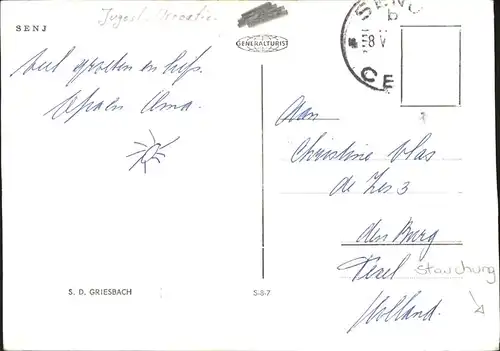 SENJ
Jugosl. Kroatie
GENERALTURIST
SENJ
b
8 V
CE
veel groeten en liefs.
Opa en Oma.
Aan
Christine Vlas
de Zes 3
den Burg
Texel Stauchung
Holland.
S. D. GRIESBACH
S-8-7